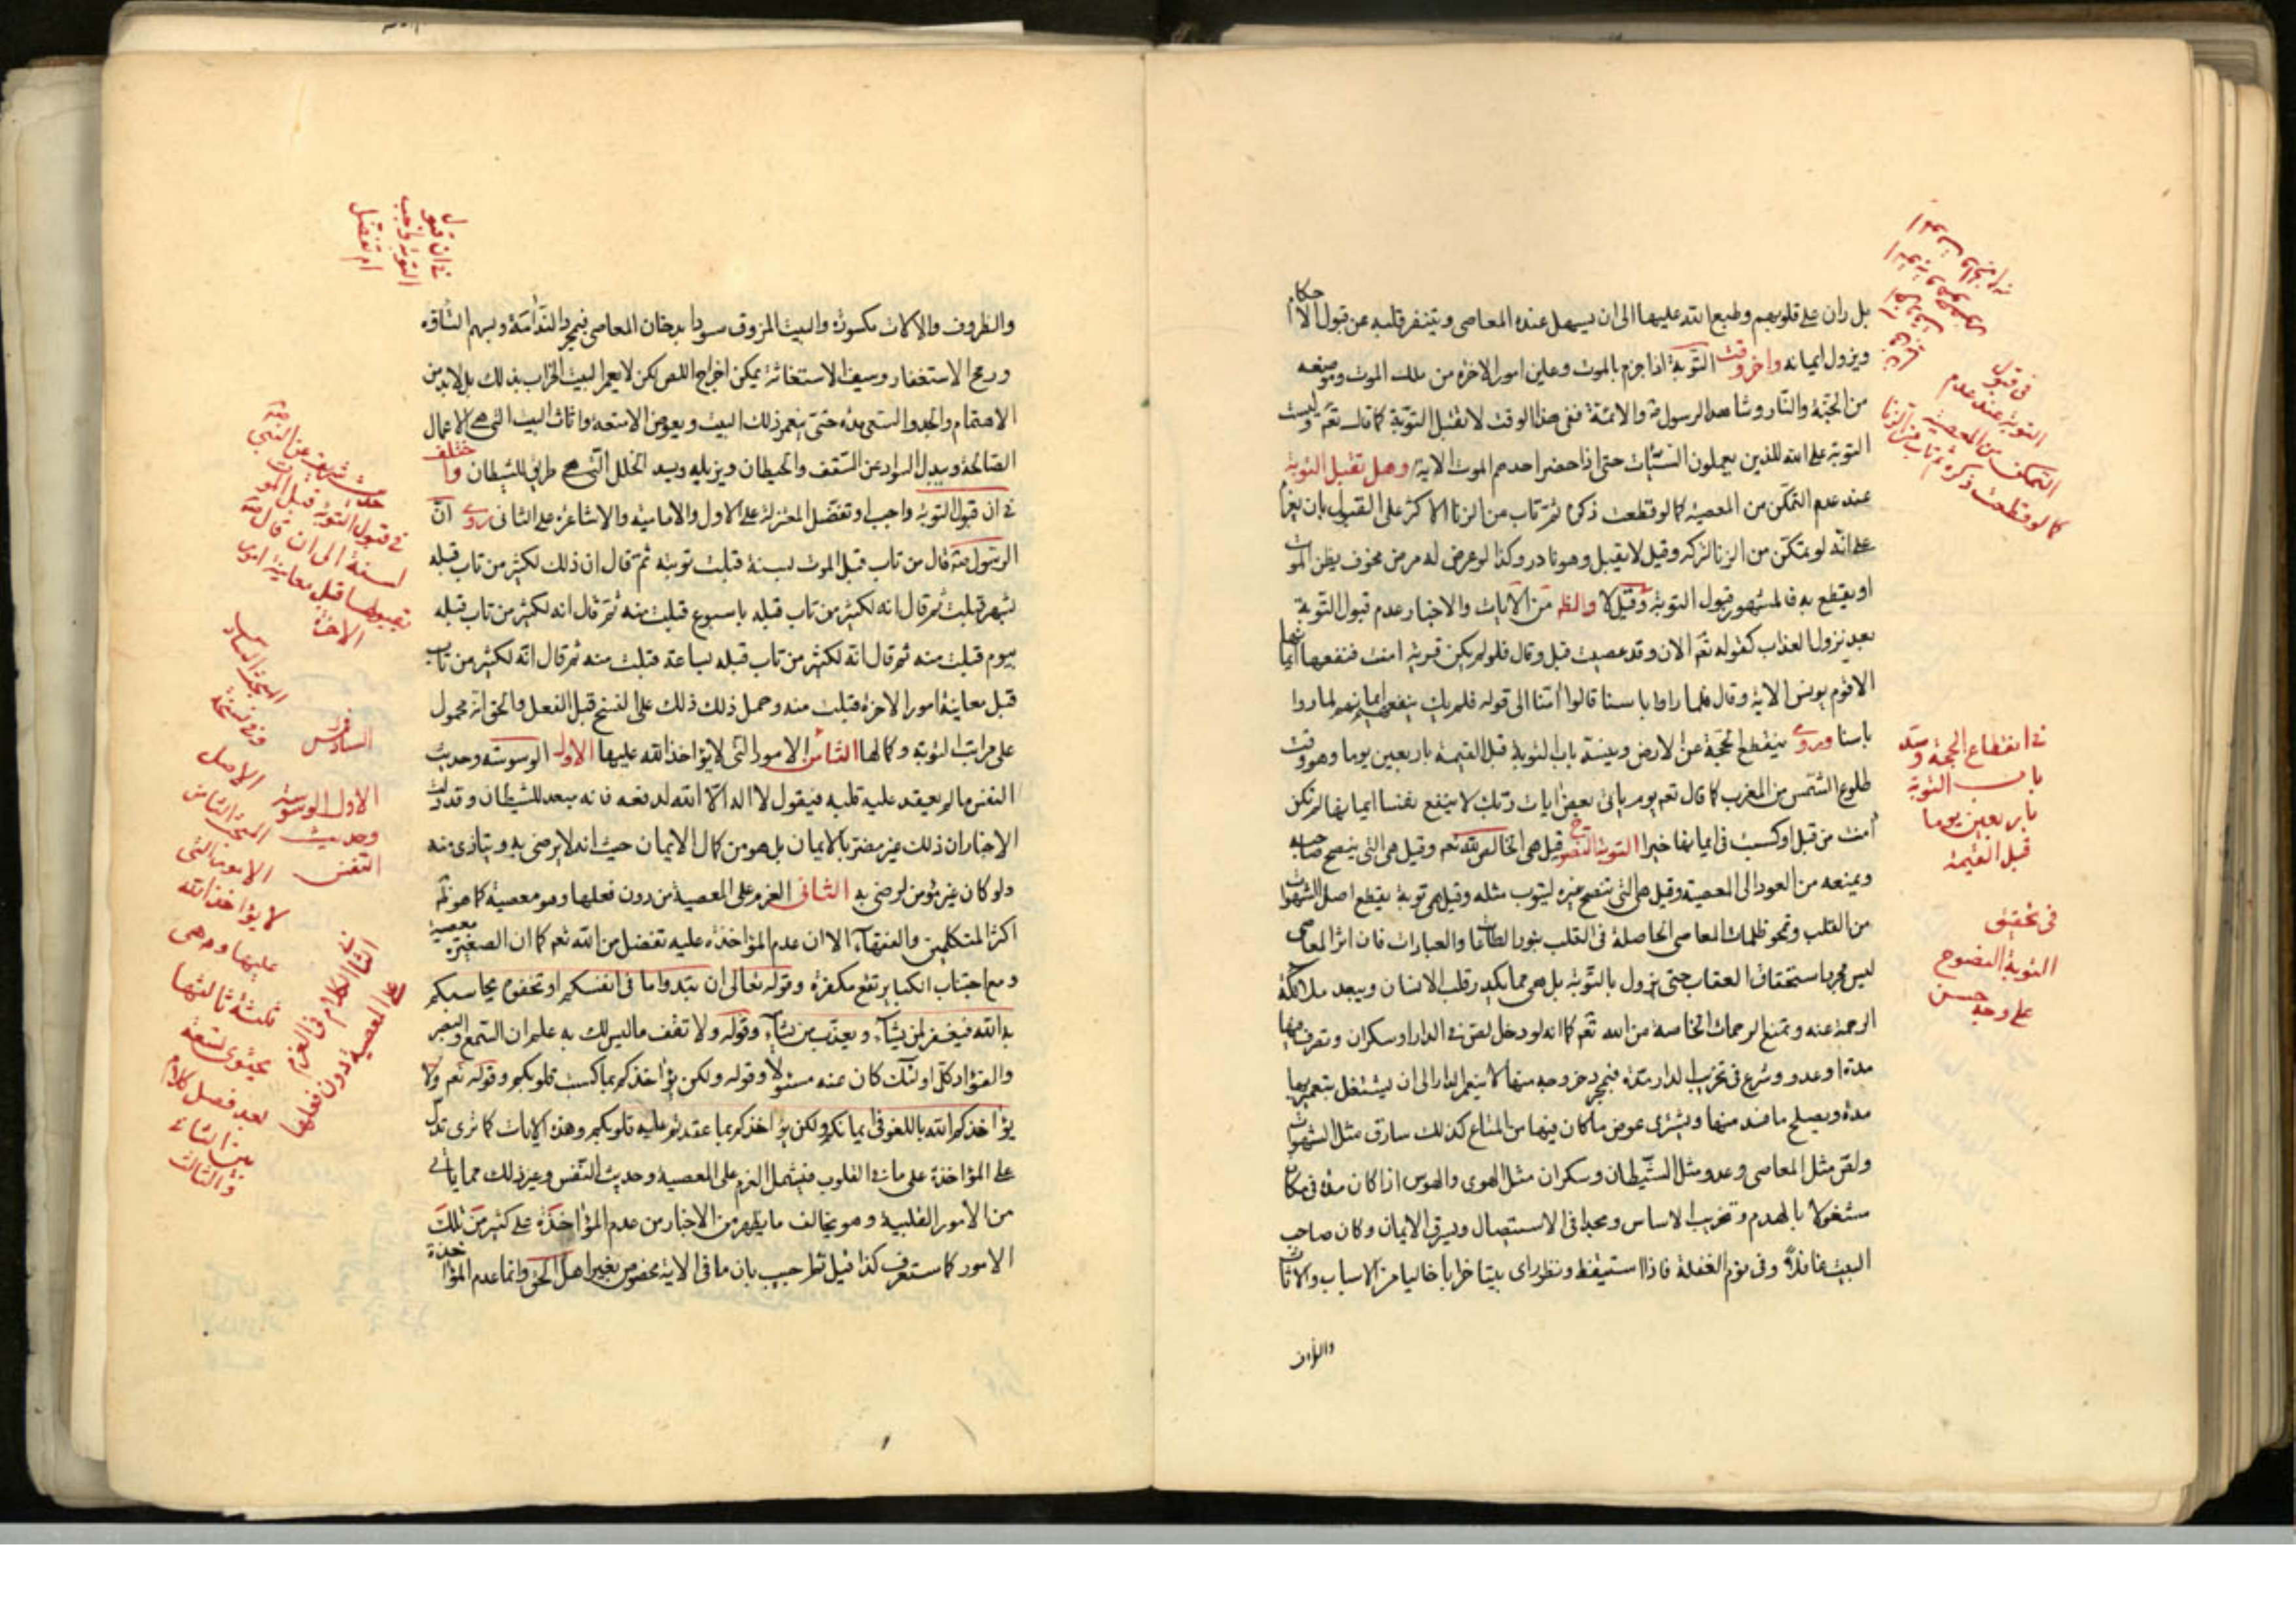 بل ران على قلوبهم وطبع الله عليها الى ان يسهل عنده المعاصى ويتنفر قلبه عن قبول الاحكام
ويزول ايمانه واخر وقت التوبة اذا جزم بالموت وعاين امور الاخرة من ملك الموت وموضعه
من الجنة والنار وشاهد الرسول ص والائمة ففى هذا الوقت لا تقبل التوبة كما قال تعم وليست
التوبة على الله للذين يعملون السيّات حتى اذا حضر احدهم الموت الاية وهل تقبل التوبة
عند عدم التمكن من المعصية كما لو قطعت ذكره ثم تاب من الزنا الاكثر على القبول بان يعزم
على انه لو يتمكن من الزنا لتركه وقيل لا يقبل وهو نادر وكذا لو عرض له مرض مخوف يظن الموت
او يقطع به فالمشهور قبول التوبة وقيل لا والظ من الآيات والاخبار عدم قبول التوبة
بعد نزول العذاب كقوله تعم الان وقد عصيت قبل وقال فلولا يكن قرية امنت فنفعها ايمانها
الا قوم يونس الاية وقال فلما راوا باسنا قالوا امنا الى قوله فلم يك ينفعهم ايمانهم لما راوا
باسنا وروى ينقطع الحجة عن الارض وينسد باب التوبة قبل القيمة باربعين يوما وهو وقت
طلوع الشمس من المغرب كما قال تعم يوم ياتى بعض ايات ربك لا ينفع نفسا ايمانها لم تكن
امنت من قبل او كسبت فى ايمانها خيرا التوبة النصوح قيل هى الخالص لله تعم وقيل هى التى ينصح صاحبه
ويمنعه من العود الى المعصية وقيل هى التى تنصح غيره ليتوب مثله وقيل هى توبة يقطع اصل الشهوات
من القلب وتمحو ظلمات المعاصى الحاصلة فى القلب بنور الطاعات والعبادات فان اثر المعاصى
ليس مجرد استحقاق العقاب حتى يزول بالتوبة بل هى مما يكدر قلب الانسان ويبعد ملائكة
الرحمة عنه وتمنع الرحمات الخاصة من الله تعم كما انه لو دخل لص فى الدار او سكران وتصرف فيها
مدة او عدو وشرع فى تخريب الدار مدة فبمجرد خروجه منها لا ينعمر الدار الى ان يشتغل بتعميرها
مدة ويصلح ما فسد منها ويشترى عوض ما كان فيها من المتاع كذلك سارق مثل الشهوات
ولص مثل المعاصى وعدو مثل الشيطان وسكران مثل الهوى والهوس اذا كان مدة فى مكان
مشغولا بالهدم وتخريب الاساس ومجدا فى الاستيصال ويسرق الايمان وكان صاحب
البيت غافلا وفى نوم الغفلة فاذا استيقظ ونظر راى بيتا خرابا خاليا من الاسباب والاثاث
والظروف
فى قبول
التوبة عند عدم
التمكن من المعصية
كما لو قطعت ذكره ثم تاب من الزنا
فى انقطاع الحجة وسد
باب التوبة
باربعين يوما
قبل القيمة
فى تحقيق
التوبة النصوح
على وجه حسن
والظروف والآلات مكسورة والبيت المزوق سودا بدخان المعاصى فبمجرد الندامة وبسهم التاوه
ورمح الاستغفار وسيف الاستغاثة يمكن اخراج اللص لكن لا يعمر البيت الخراب بذلك بل لابد من
الاهتمام والجد والسعى مدة حتى ينعمر ذلك البيت ويعوض الامتعة واثاث البيت التى هى الاعمال
الصالحة ويبدل السواد عن السقف والحيطان ويزيله ويسد الخلل التى هى طريق للشيطان واختلف
فى ان قبول التوبة واجب او تفضل المعتزلة على الاول والامامية والاشاعرة على الثانى روى ان
الرسول ص قال من تاب قبل الموت بسنة قبلت توبته ثم قال ان ذلك لكثير من تاب قبله
بشهر قبلت ثم قال انه لكثير من تاب قبله باسبوع قبلت منه ثم قال انه لكثير من تاب قبله
بيوم قبلت منه ثم قال انه لكثير من تاب قبله بساعة قبلت منه ثم قال انه لكثير من تاب
قبل معاينة امور الاخرة قبلت منه وحمل ذلك على الفسخ قبل الفعل والحق انه محمول
على مراتب التوبة وكمالها الثامن الامور التى لا يؤاخذ الله عليها الاول الوسوسة وحديث
النفس ما لم يعقد عليه قلبه فيقول لا اله الا الله لدفعه فانه يبعد للشيطان وقد دلت
الاخبار ان ذلك غير مضر بالايمان بل هو من كمال الايمان حيث انه لا يرضى به ويتاذى منه
ولو كان غير مؤمن لرضى به الثانى العزم على المعصية من دون فعلها وهو معصية كما هو ظم
اكثر المتكلمين والفقهاء الا ان عدم المؤاخذة عليه تفضل من الله تعم كما ان الصغيرة معصية
ومع اجتناب الكبائر تقع مكفرة وقوله تعالى ان تبدوا ما فى انفسكم او تخفوه يحاسبكم
به الله فيغفر لمن يشاء ويعذب من يشاء وقوله ولا تقف ما ليس لك به علم ان السمع والبصر
والفؤاد كل اولئك كان عنه مسئولا وقوله ولكن يؤاخذكم بما كسبت قلوبكم وقوله تعم ولا
يؤاخذكم الله باللغو فى ايمانكم ولكن يؤاخذكم بما عقدتم عليه قلوبكم وهذه الايات كما ترى تدل
على المؤاخذة على ما فى القلوب فيشمل العزم على المعصية وحديث النفس وغير ذلك مما ياتى
من الامور القلبية وهو يخالف ما يظهر من الاخبار من عدم المؤاخذة على كثير من تلك
الامور كما ستعرف كذا قيل اجيب بان ما فى الاية مخصوص بغير اهل الحق وانما عدم المؤاخذة
فى ان قبول
التوبة واجب
ام تفضل
حديث شريف عن النبى ص
فى قبول التوبة قبل الموت
لسنة الى ان قال
قبل معاينة امور
الاخرة
السادس
الاول الوسوسة
وحديث
النفس
وفى نسخة
الاصل
الامور التى
لا يؤاخذ الله
عليها وهى
بعد فصل كلام
بين الثانى
والثالث
الثانى الكلام فى العزم
على المعصية دون فعلها